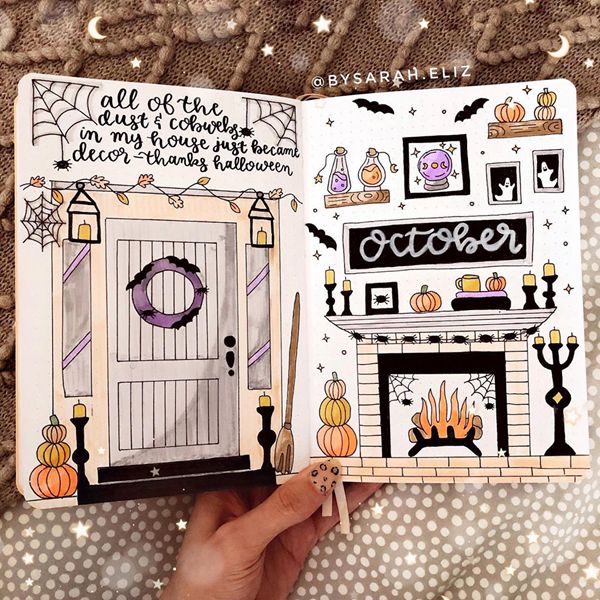 all of the
dust & cobwebs
in my house just became
decor - thanks halloween
@BYSARAH.ELIZ
october